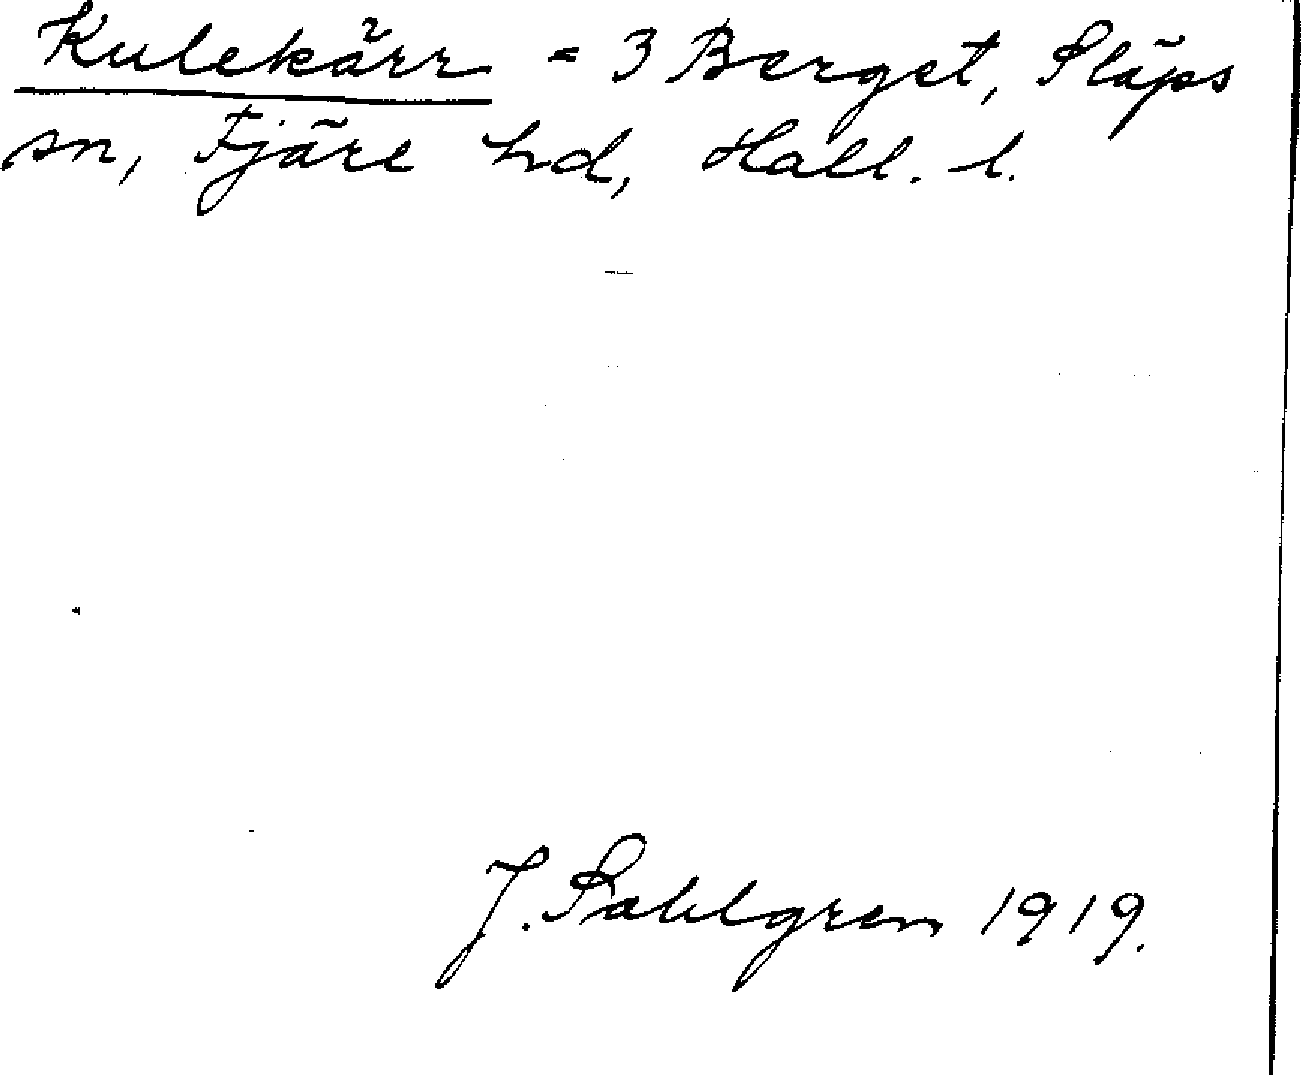 Kulekärr = 3 Berget, Släps
sn, Fjäre hd, Hall. l.
J. Sahlgren 1919.